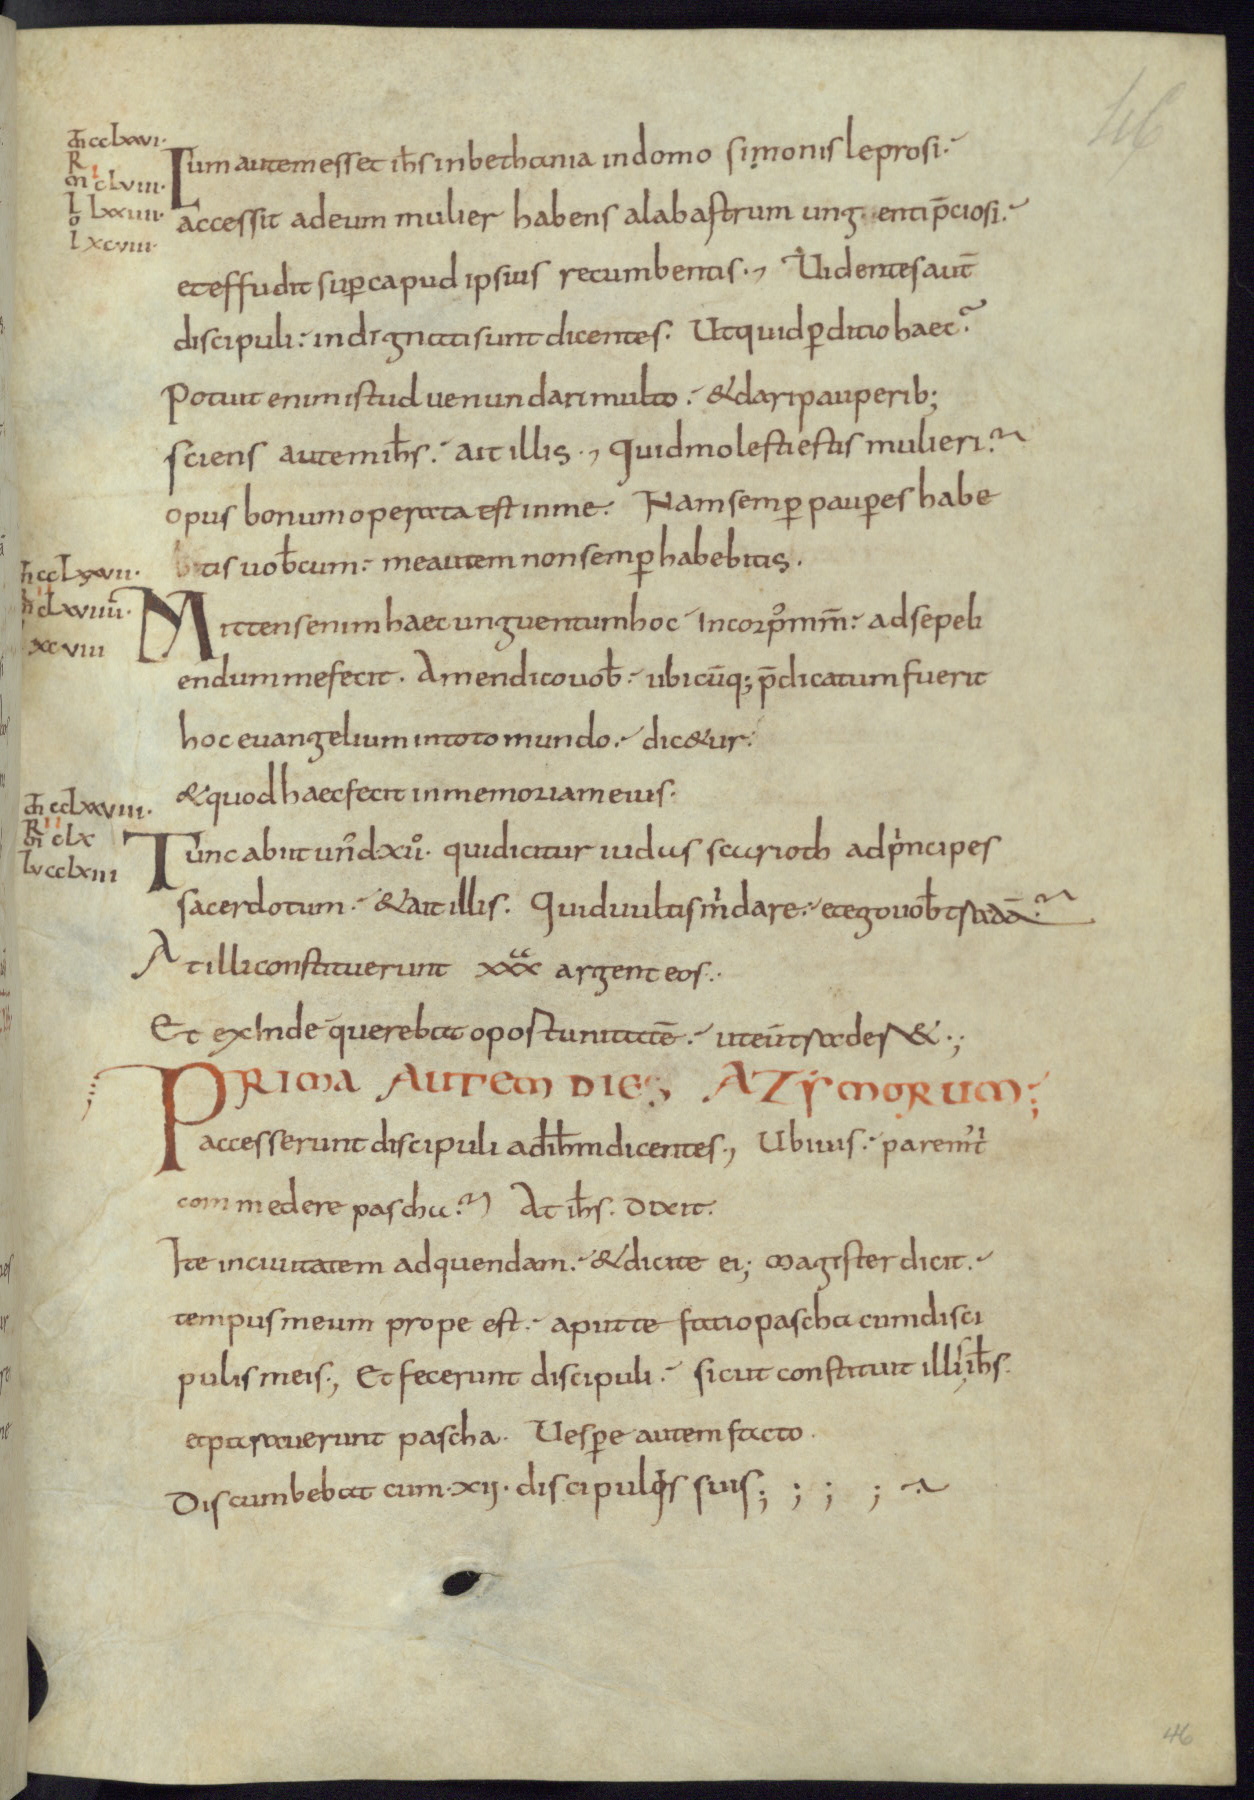 46
m̅ cclxxvi·
R
m̅ clviii·
l lxxiiii·
o
l xcviii·
Cum autem esset ih̅s in bethania in domo simonis leprosi·
accessit ad eum mulier habens alabastrum ung enti p̅ciosi·
et effudit sup̲ capud ipsius recumbentis·, Uidentes aut̅
discipuli· indignati sunt dicentes· Ut quid p̲ditio haec·
Potuit enim istud uenundari multo· & dari pauperib;
sciens autem ih̅s· ait illis·, Quid molesti estis mulieri·
opus bonum operata est in me· Nam semp̲ paup̲es habe
tis uob̅cum· me autem non semp̲ habebitis·
cclxxvii·
clxviiii·
xcviii
Mittens enim haec unguentum hoc In corp̲ m̅m̅· ad sepeli
endum me fecit· Amen dico uob̅· ubicu̅q; p̅dicatum fuerit
hoc euangelium in toto mundo· dic&ur·
& quod haec fecit in memoriam eius·
m̅ cclxxviii·
R
m̅ clx
lu cclxiii
Tunc abiit un̅ d xii̊· qui dicitur iudas scarioth ad principes
sacerdotum· & ait illis· Quid uultis m̍ dare· et ego uob̅
At illi constituerunt xxx argenteos·
Et exInde querebat opostunitate̅· ut eu̅ trader&·;
PRIMA AUTEM DIES AZYMORUM;
accesserunt discipuli ad ih̅m dicentes·, Ubi uis· parem̍ t̍
commedere pascha· At ih̅s· dixit·
Ite in ciuitatem ad quendam· & dicite ei; magister dicit·
tempus meum prope est· aput te fatio pascha cum disci
pulis meis·, Et fecerunt discipuli· sicut constituit illi ih̅s·
et parauerunt pascha· Uesp̲e autem facto·
Discumbebat cum·xij· discipulis suis; ; ; ;
46